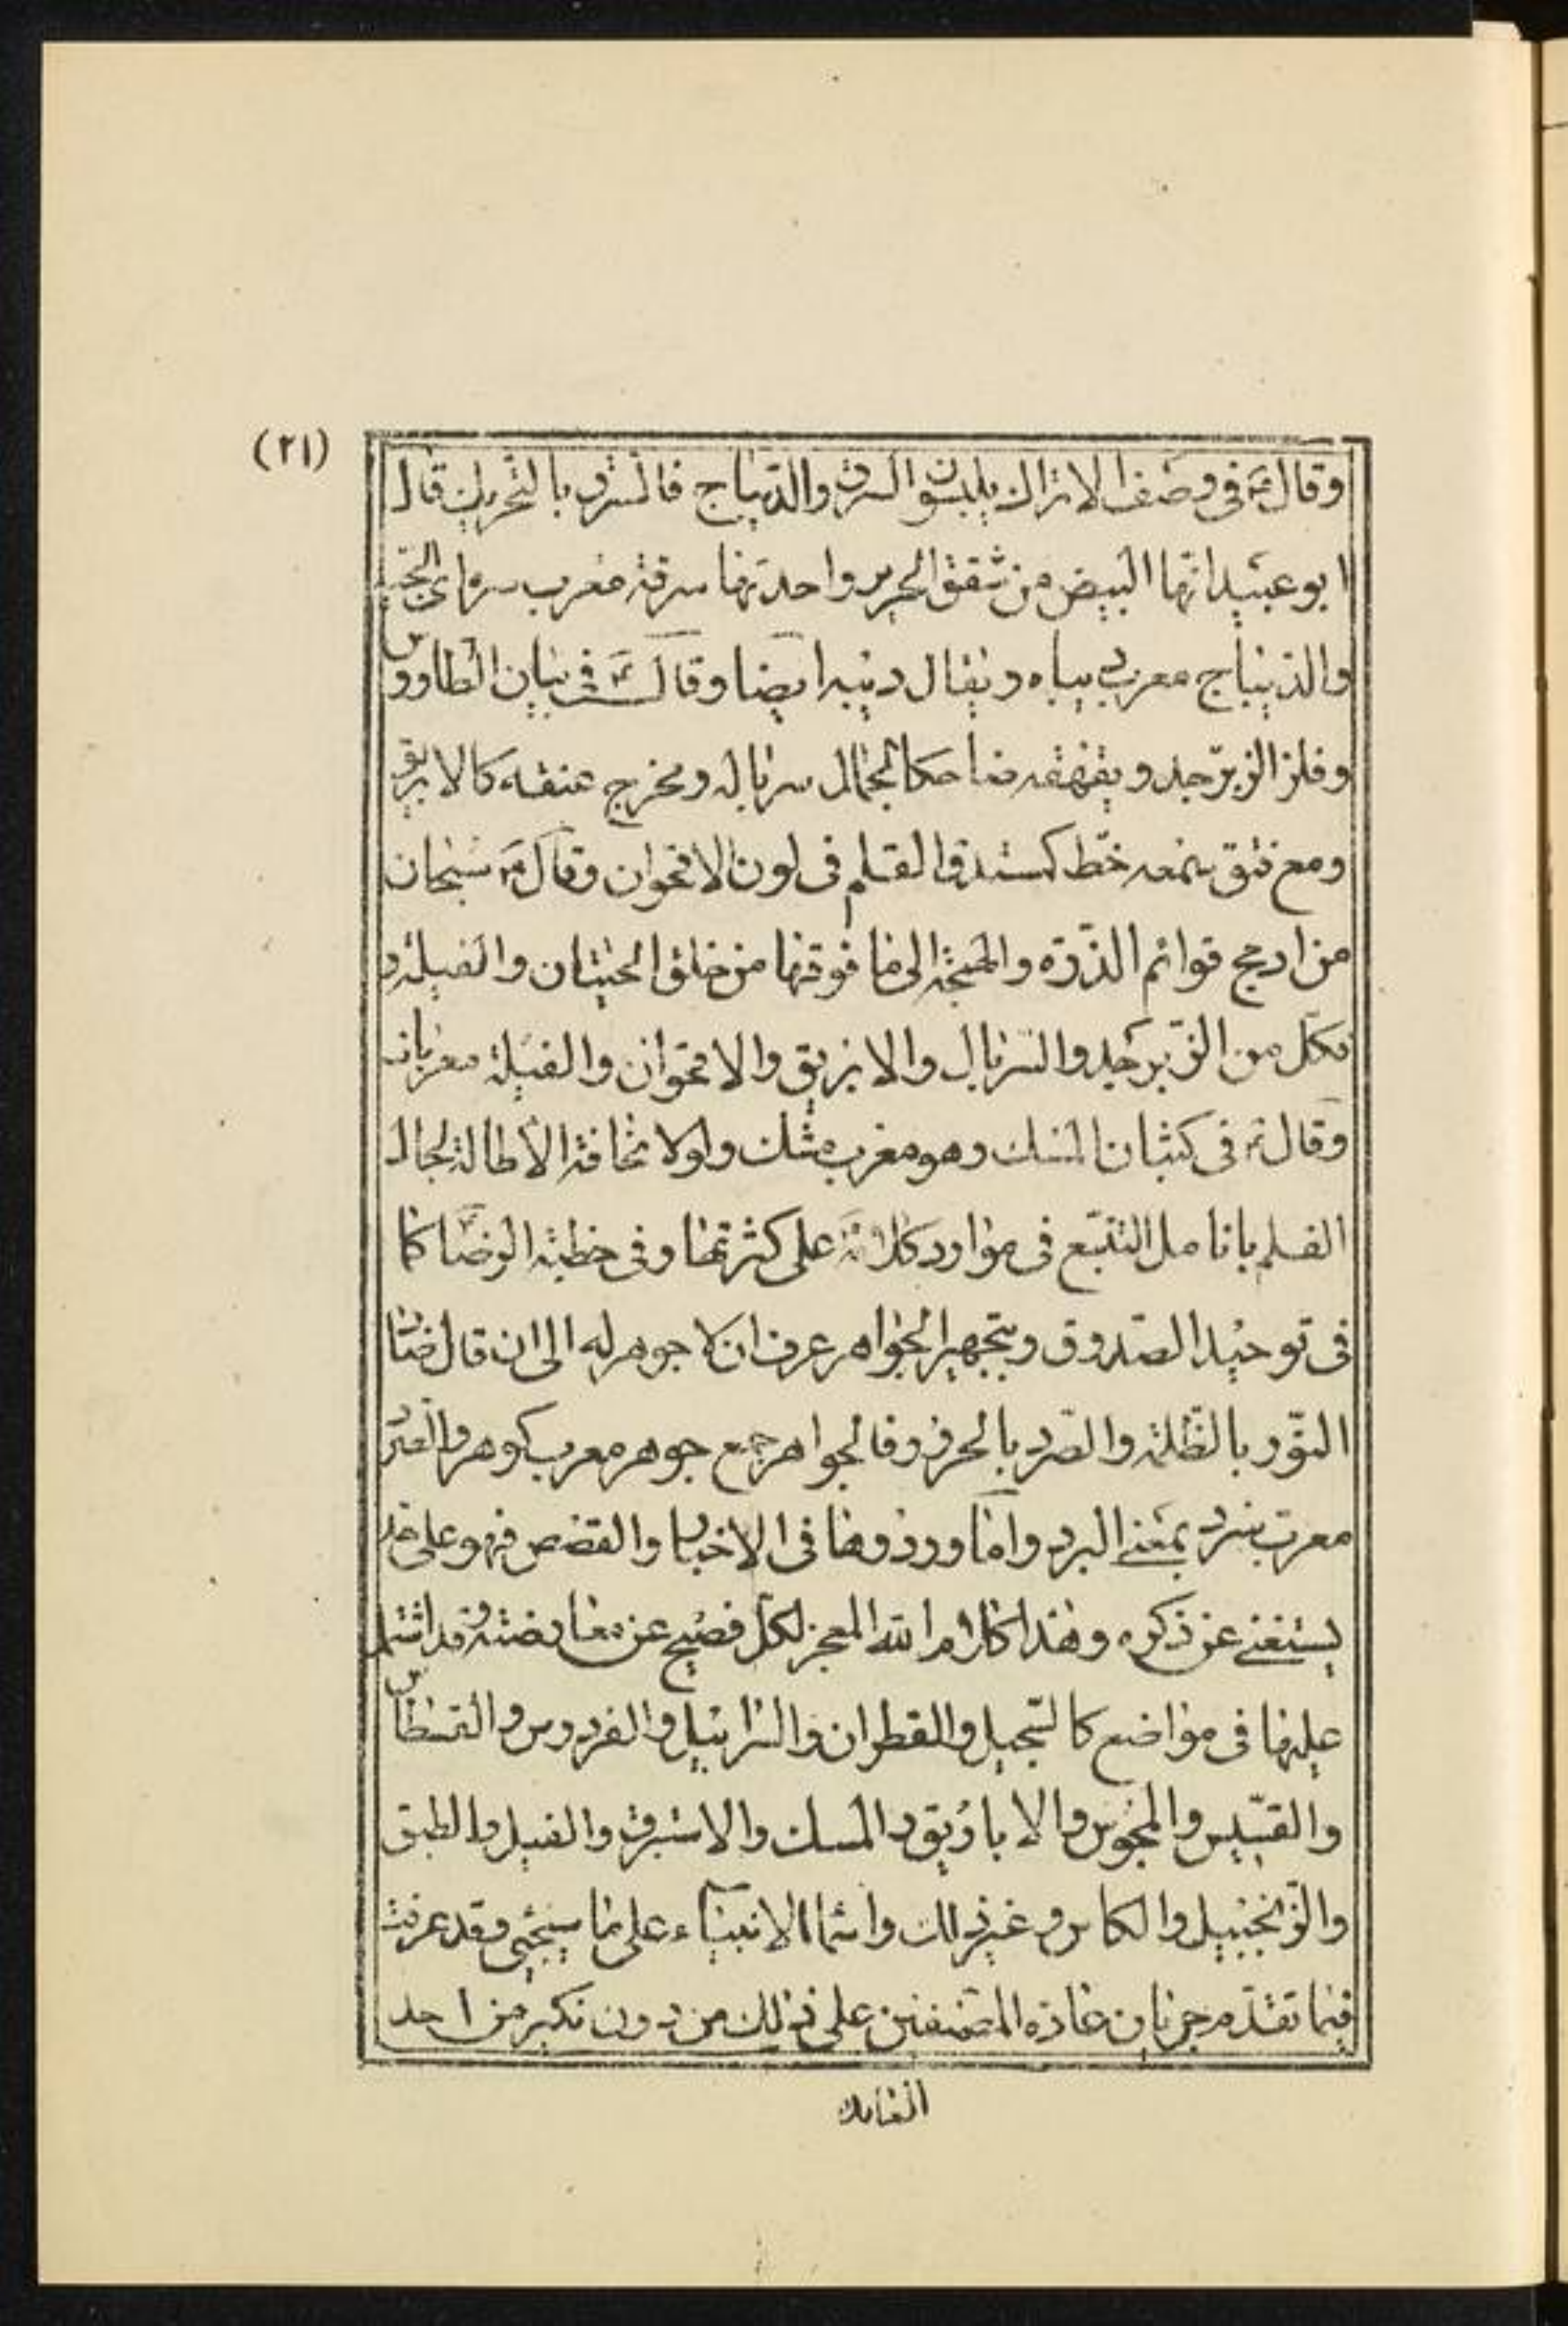 (٢١)
وقال ع في وصف الاتراك يلبسون السرق والديباج فالسرق بالتحريك قال
ابو عبيد انها البيض من شقق الحرير واحدتها سرقة معرب سره اى الجيد
والديباج معرب ديباه ويقال ديبه ايضا وقال ع في بيان الطاووس
وفلز الزبرجد ويقهقه ضاحكا لجمال سرباله ومخرج عنقه كالابريق
ومع فتق سمعه خط كمستدق القلم في لون الاقحوان وقال ع سبحان
من ادمج قوائم الذرة والهمجة الى ما فوقها من خلق الحيتان والفيلة و
فكل من الزبرجد والسربال والابريق والاقحوان والفيلة معربات
وقال ع في كثبان المسك وهو معرب مشك ولولا مخافة الاطالة لجال
القلم بانامل التتبع في موارد كلامه على كثرتها وفي خطبة الرضا كما
في توحيد الصدوق وبتجهير الجواهر عرف ان لا جوهر له الى ان قال ضاد
النور بالظلمة والصرد بالحرور فالجواهر جمع جوهر معرب كوهر والصرد
معرب سرد بمعنى البرد واما ورودها في الاخبار والقصص فهو على حد
يستغنى عن ذكره وهذا كلام الله المعجز لكل فصيح عن معارضته قد اشتمل
عليها في مواضع كالسجيل والقطران والسرابيل والفردوس والقسطاس
والقسيس والمجوس والاباريق والمسك والاستبرق والفيل والطبق
والزنجبيل والكاس وغير ذلك واسماء الانبياء على ما سيجئ وقد عرفت
فيما تقدم جريان عادة المصنفين على ذلك من دون نكير من احد